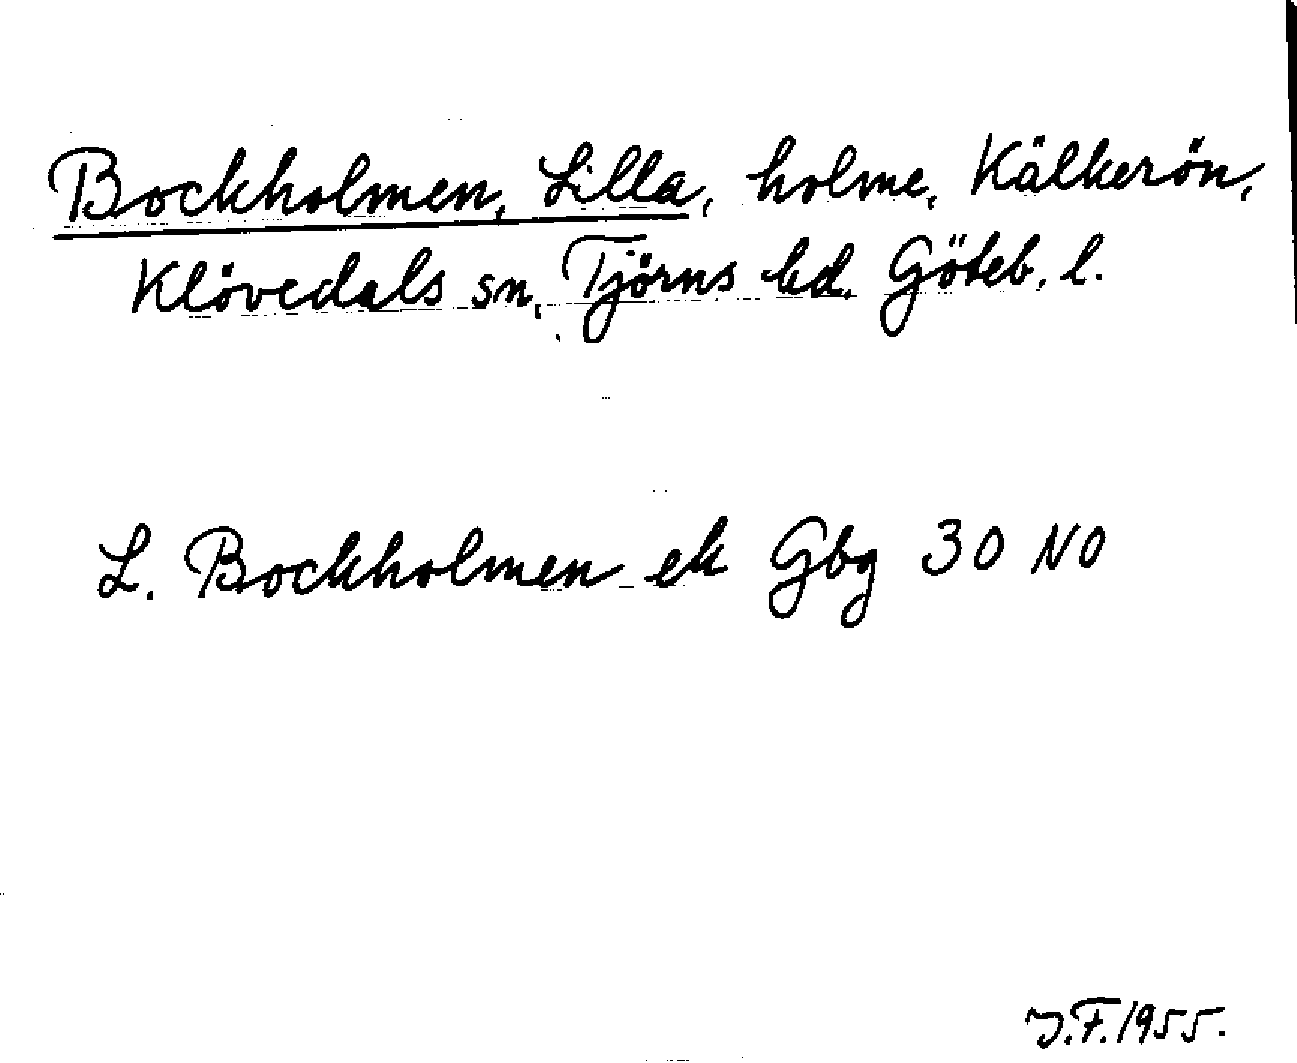 Bockholmen, Lilla, holme, Kälkerön,
Klövedals sn, Tjörns hd. Göteb. l.
L. Bockholmen ek Gbg 30 NO
J.F. 1955.